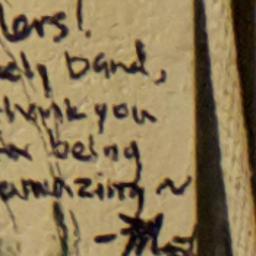 lers!
ely band,
thank you
for being
amazing ~